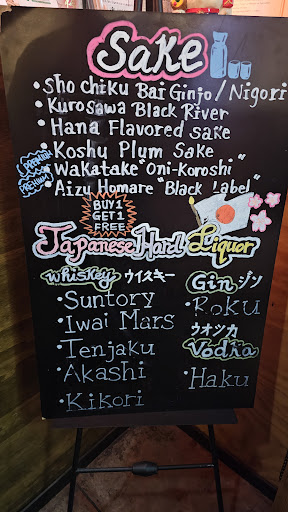 Sake
• Sho Chiku Bai Ginjo / Nigori
• Kurosawa Black River
• Hana Flavored sake
• Koshu Plum Sake
PREMIUM • Wakatake "Oni-Koroshi"
PREMIUM • Aizu Homare "Black Label"
BUY 1
GET 1
FREE
Japanese Hard Liquor
Whiskey ウイスキー
• Suntory
• Iwai Mars
• Tenjaku
• Akashi
• Kikori
Gin ジン
• Roku
ウオツカ
Vodka
• Haku